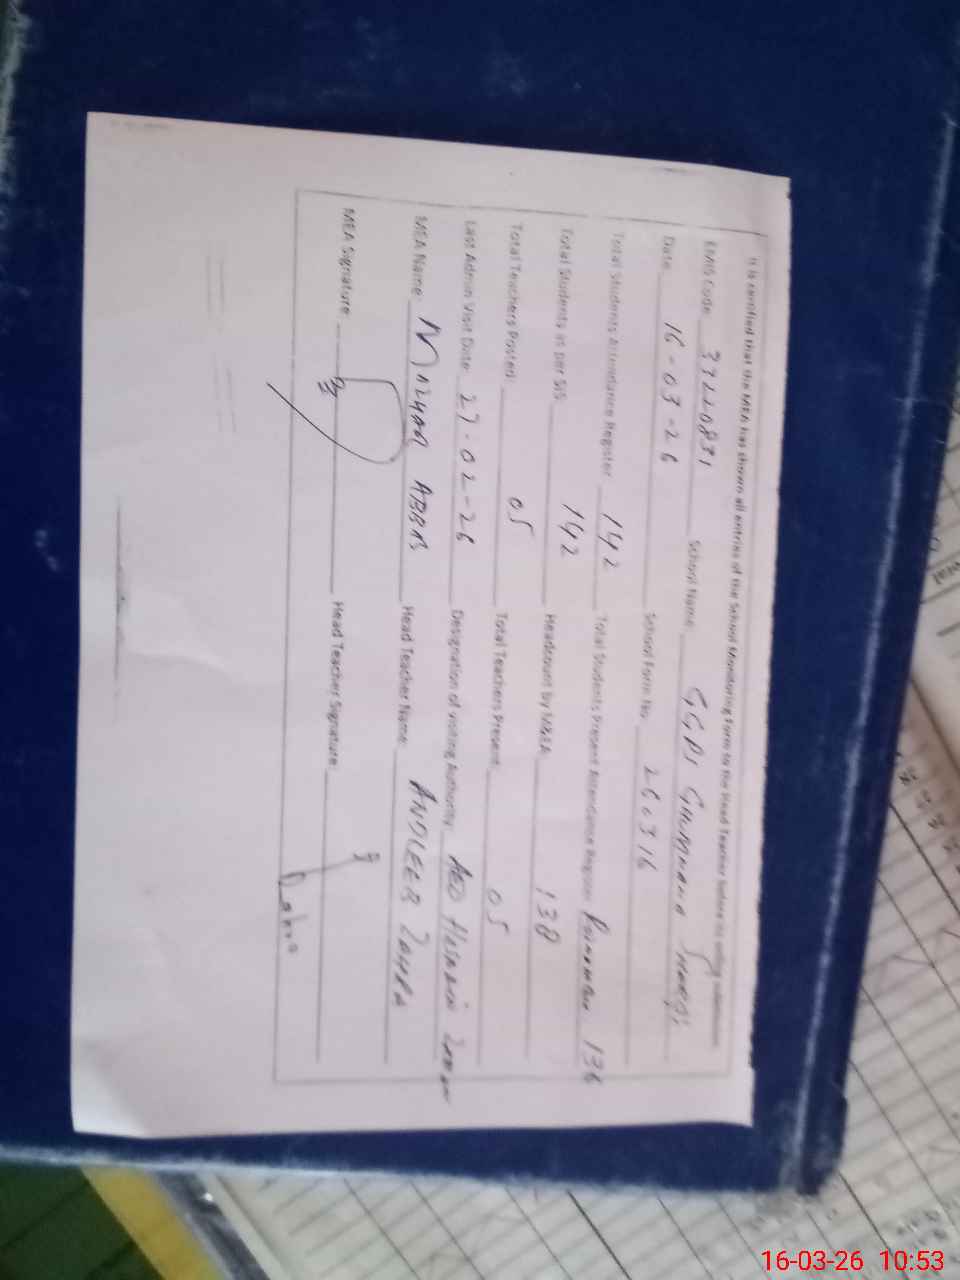 It is certified that the MEA has shown all entries of the School Monitoring Form to the Head Teacher before its online submission
EMIS Code: 37220831 School Name: GGPS
Date: 16-03-26 School Form No. 260316
Total Students Attendance Register 142 Total Students Present Attendance Register 136
Total Students as per SIS: 142 Headcount by MEA: 138
Total Teachers Posted: 05 Total Teachers Present: 05
Last Admin Visit Date: 27-02-26 Designation of visiting Authority: AEO
MEA Name: ABBAS Head Teacher Name: ANDLEEB ZAHRA
MEA Signature: Head Teacher Signature:
16-03-26 10:53